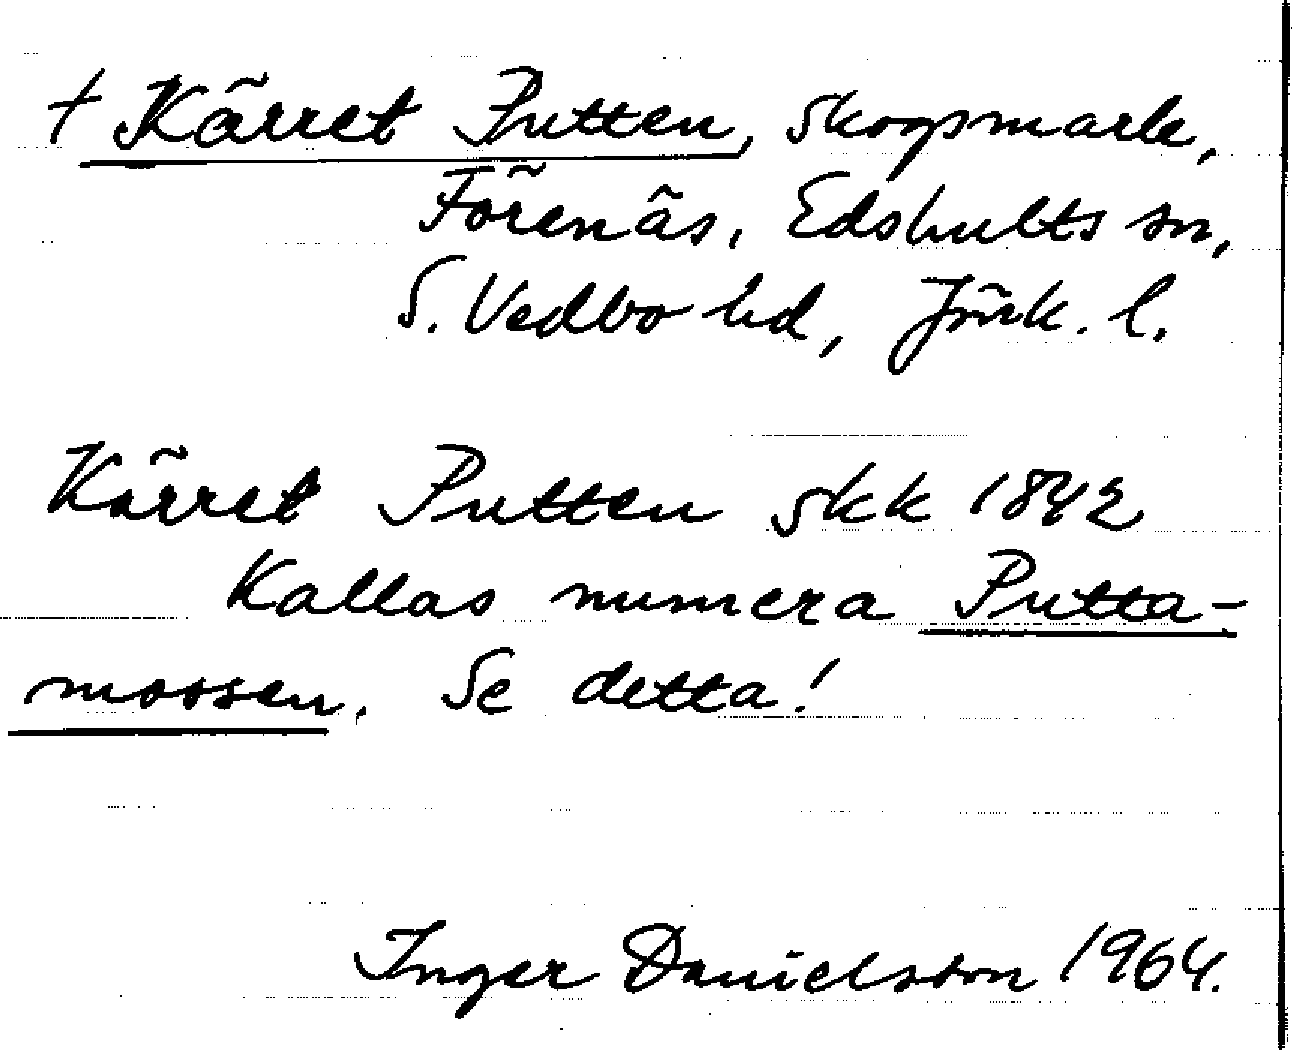 † Kärret Putten, skogsmark,
Förenäs, Edshults sn,
S. Vedbo hd, Jönk. l.
Kärret Putten skk 1842
Kallas numera Putta-
mossen. Se detta!
Inger Danielsson 1964.